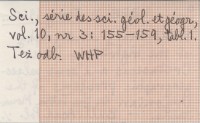 Sci., série des sci. géol. et géogr.,
vol. 10, nr 3: 155-159, tabl. 1.
Też odb. WHP